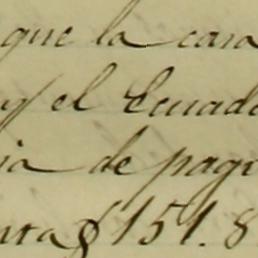 que la cara
y el Ecuado
ia de pagi
nta $151.8